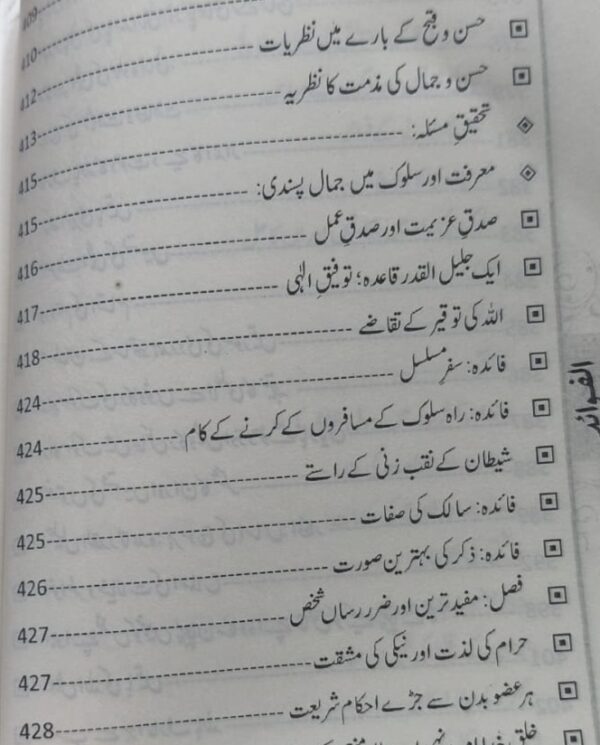 409
حسن و قبح کے بارے میں نظریات 410
حسن و جمال کی مذمت کا نظریہ 412
تحقیقِ مسئلہ: 413
معرفت اور سلوک میں جمال پسندی: 415
صدقِ عزیمت اور صدقِ عمل 415
ایک جلیل القدر قاعدہ؛ توفیقِ الٰہی 416
اللہ کی توقیر کے تقاضے 417
فائدہ: سفرِ مسلسل 418
فائدہ: راہ سلوک کے مسافروں کے کرنے کے کام 424
شیطان کے نقب زنی کے راستے 424
فائدہ: سالک کی صفات 425
فائدہ: ذکر کی بہترین صورت 425
فصل: مفید ترین اور ضرر رساں شخص 426
حرام کی لذت اور نیکی کی مشقت 427
ہر عضو بدن سے جڑے احکام شریعت 427
428
الفوائد